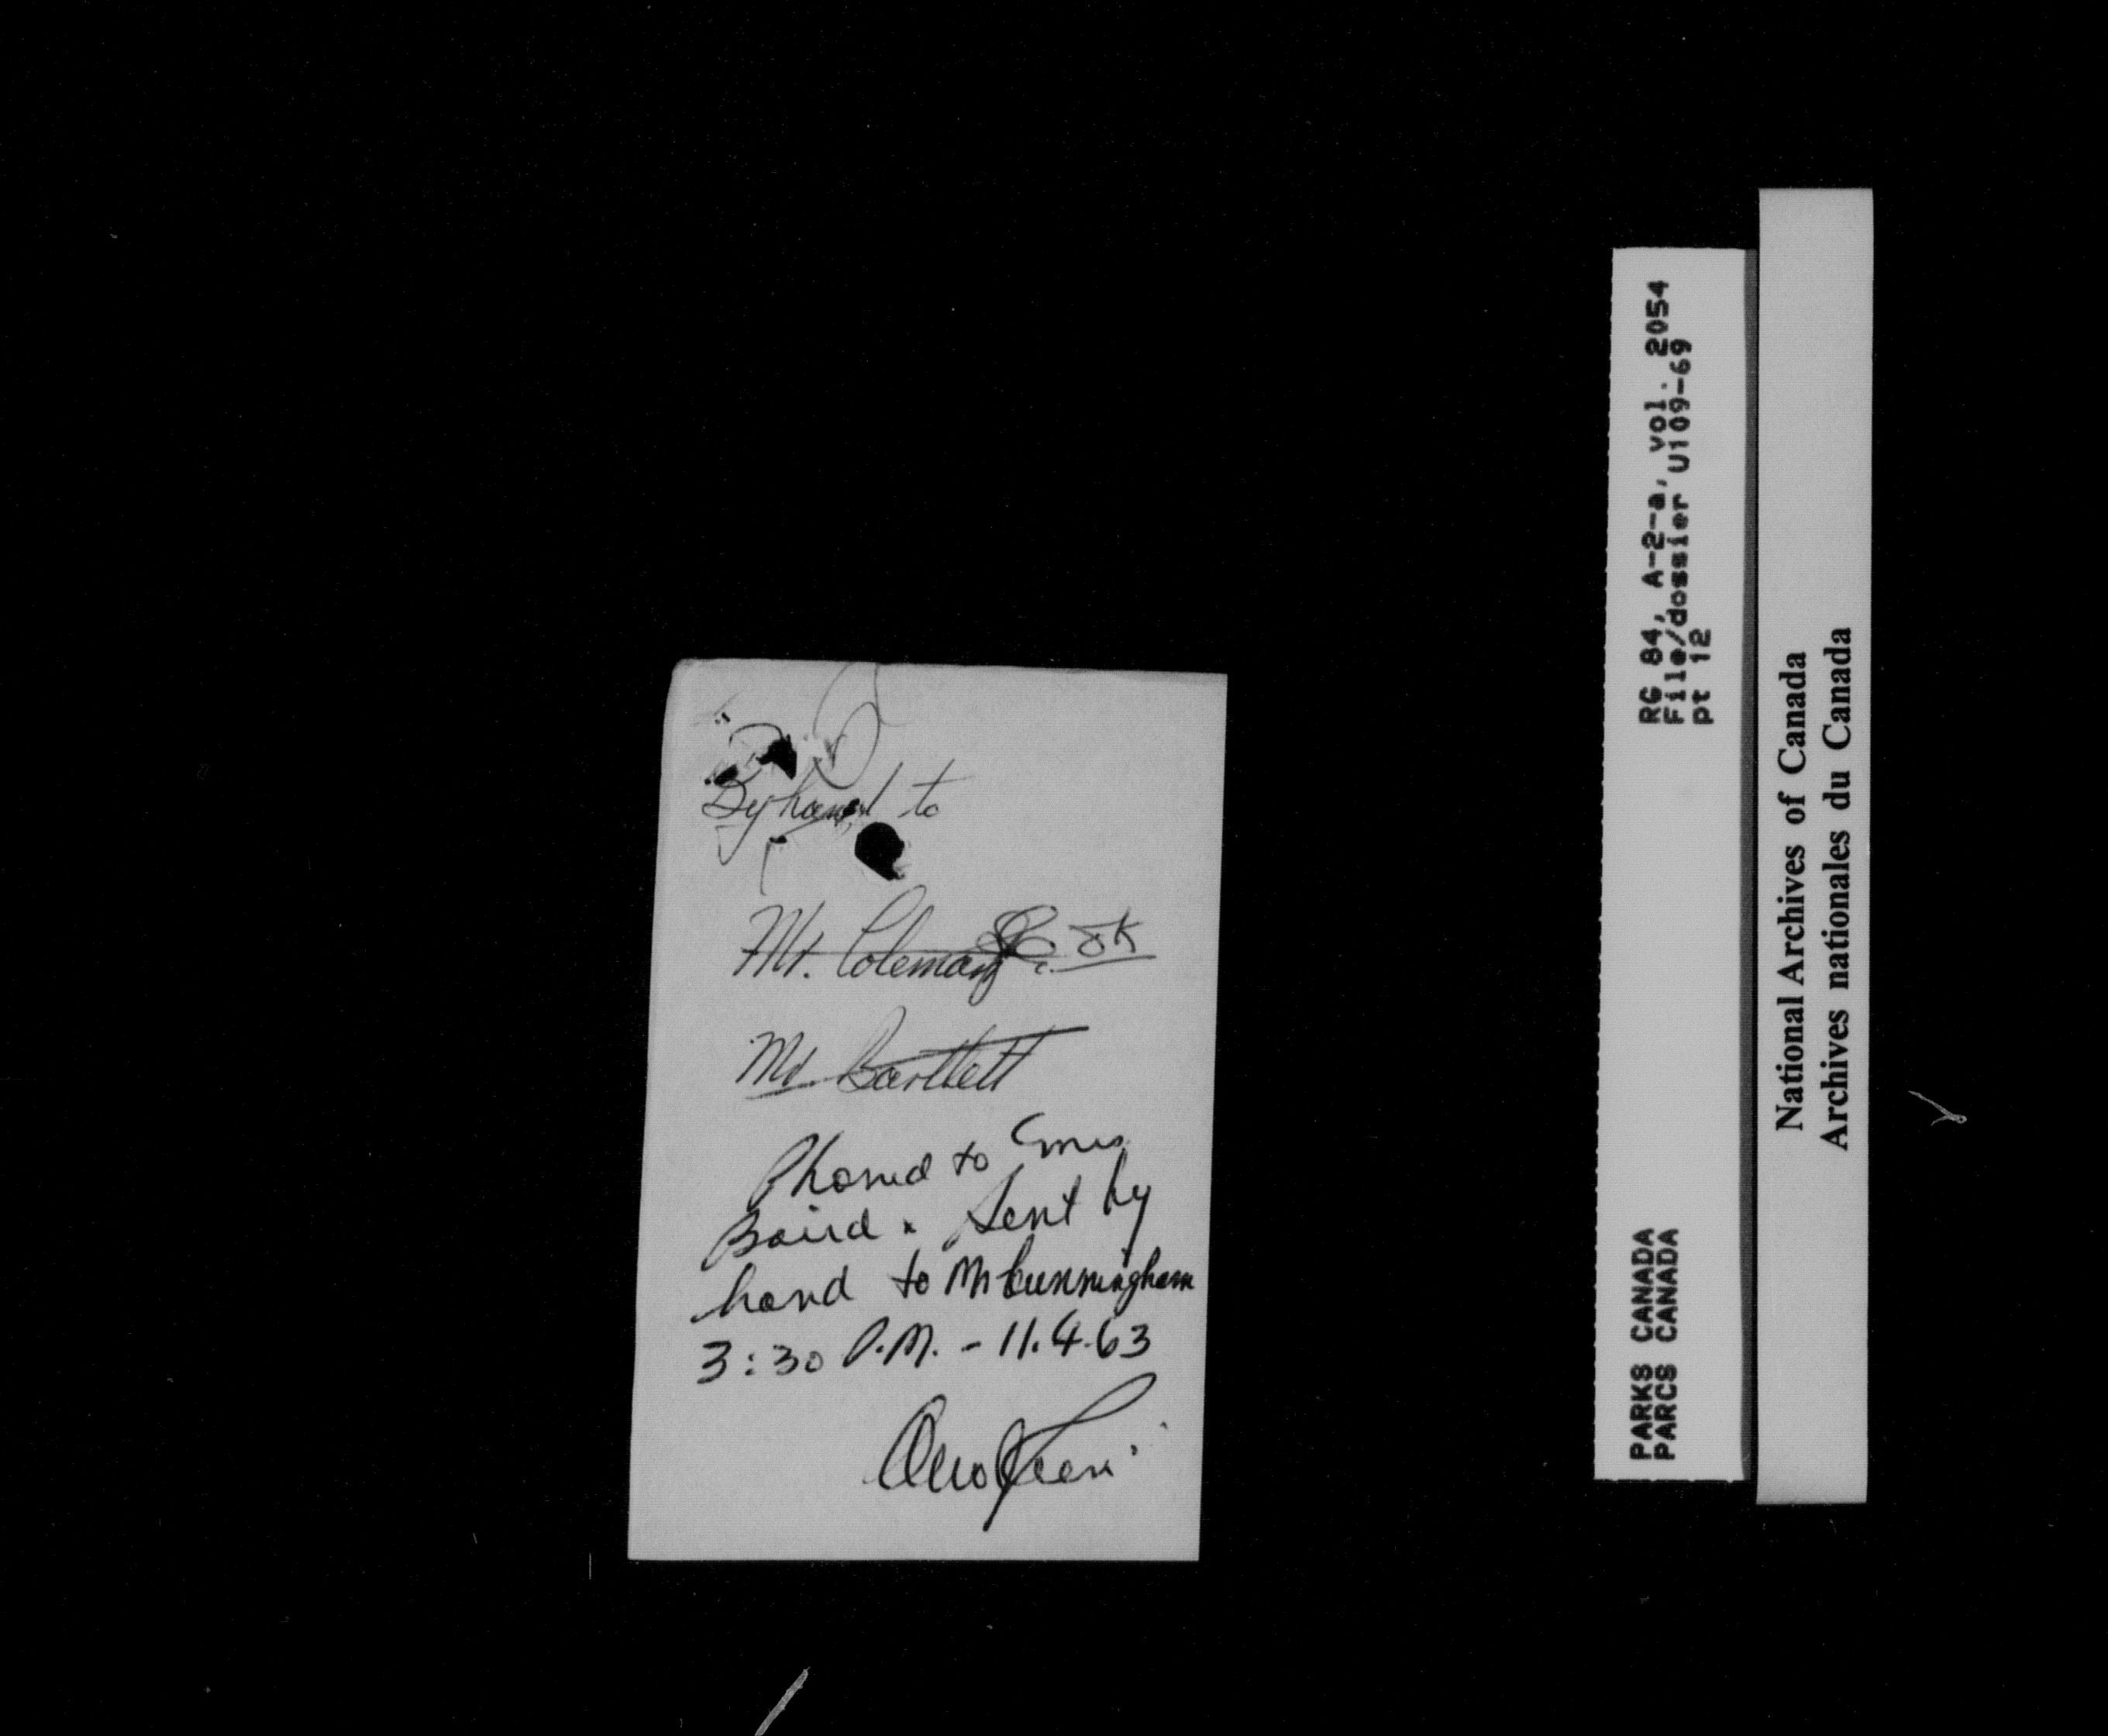 By hand to
Mr. Coleman OK
Mr. Bartlett
Phoned to
Baird. Sent by
hand to Mr Cunningham
3:30 P.M. - 11.4.63
RG 84, A-2-a, vol. 2054
File/dossier U109-69
pt 12
PARKS CANADA
PARCS CANADA
National Archives of Canada
Archives nationales du Canada